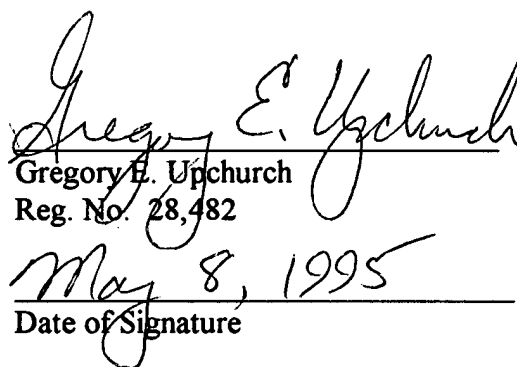 Gregory E. Upchurch
Gregory E. Upchurch
Reg. No. 28,482
May 8, 1995
Date of Signature